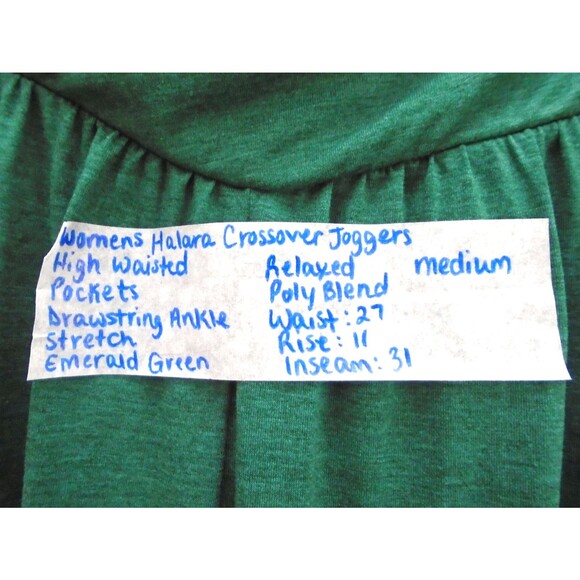 Womens Halara Crossover Joggers
High Waisted Relaxed medium
Pockets Poly Blend
Drawstring Ankle Waist: 27
Stretch Rise: 11
Emerald Green Inseam: 31